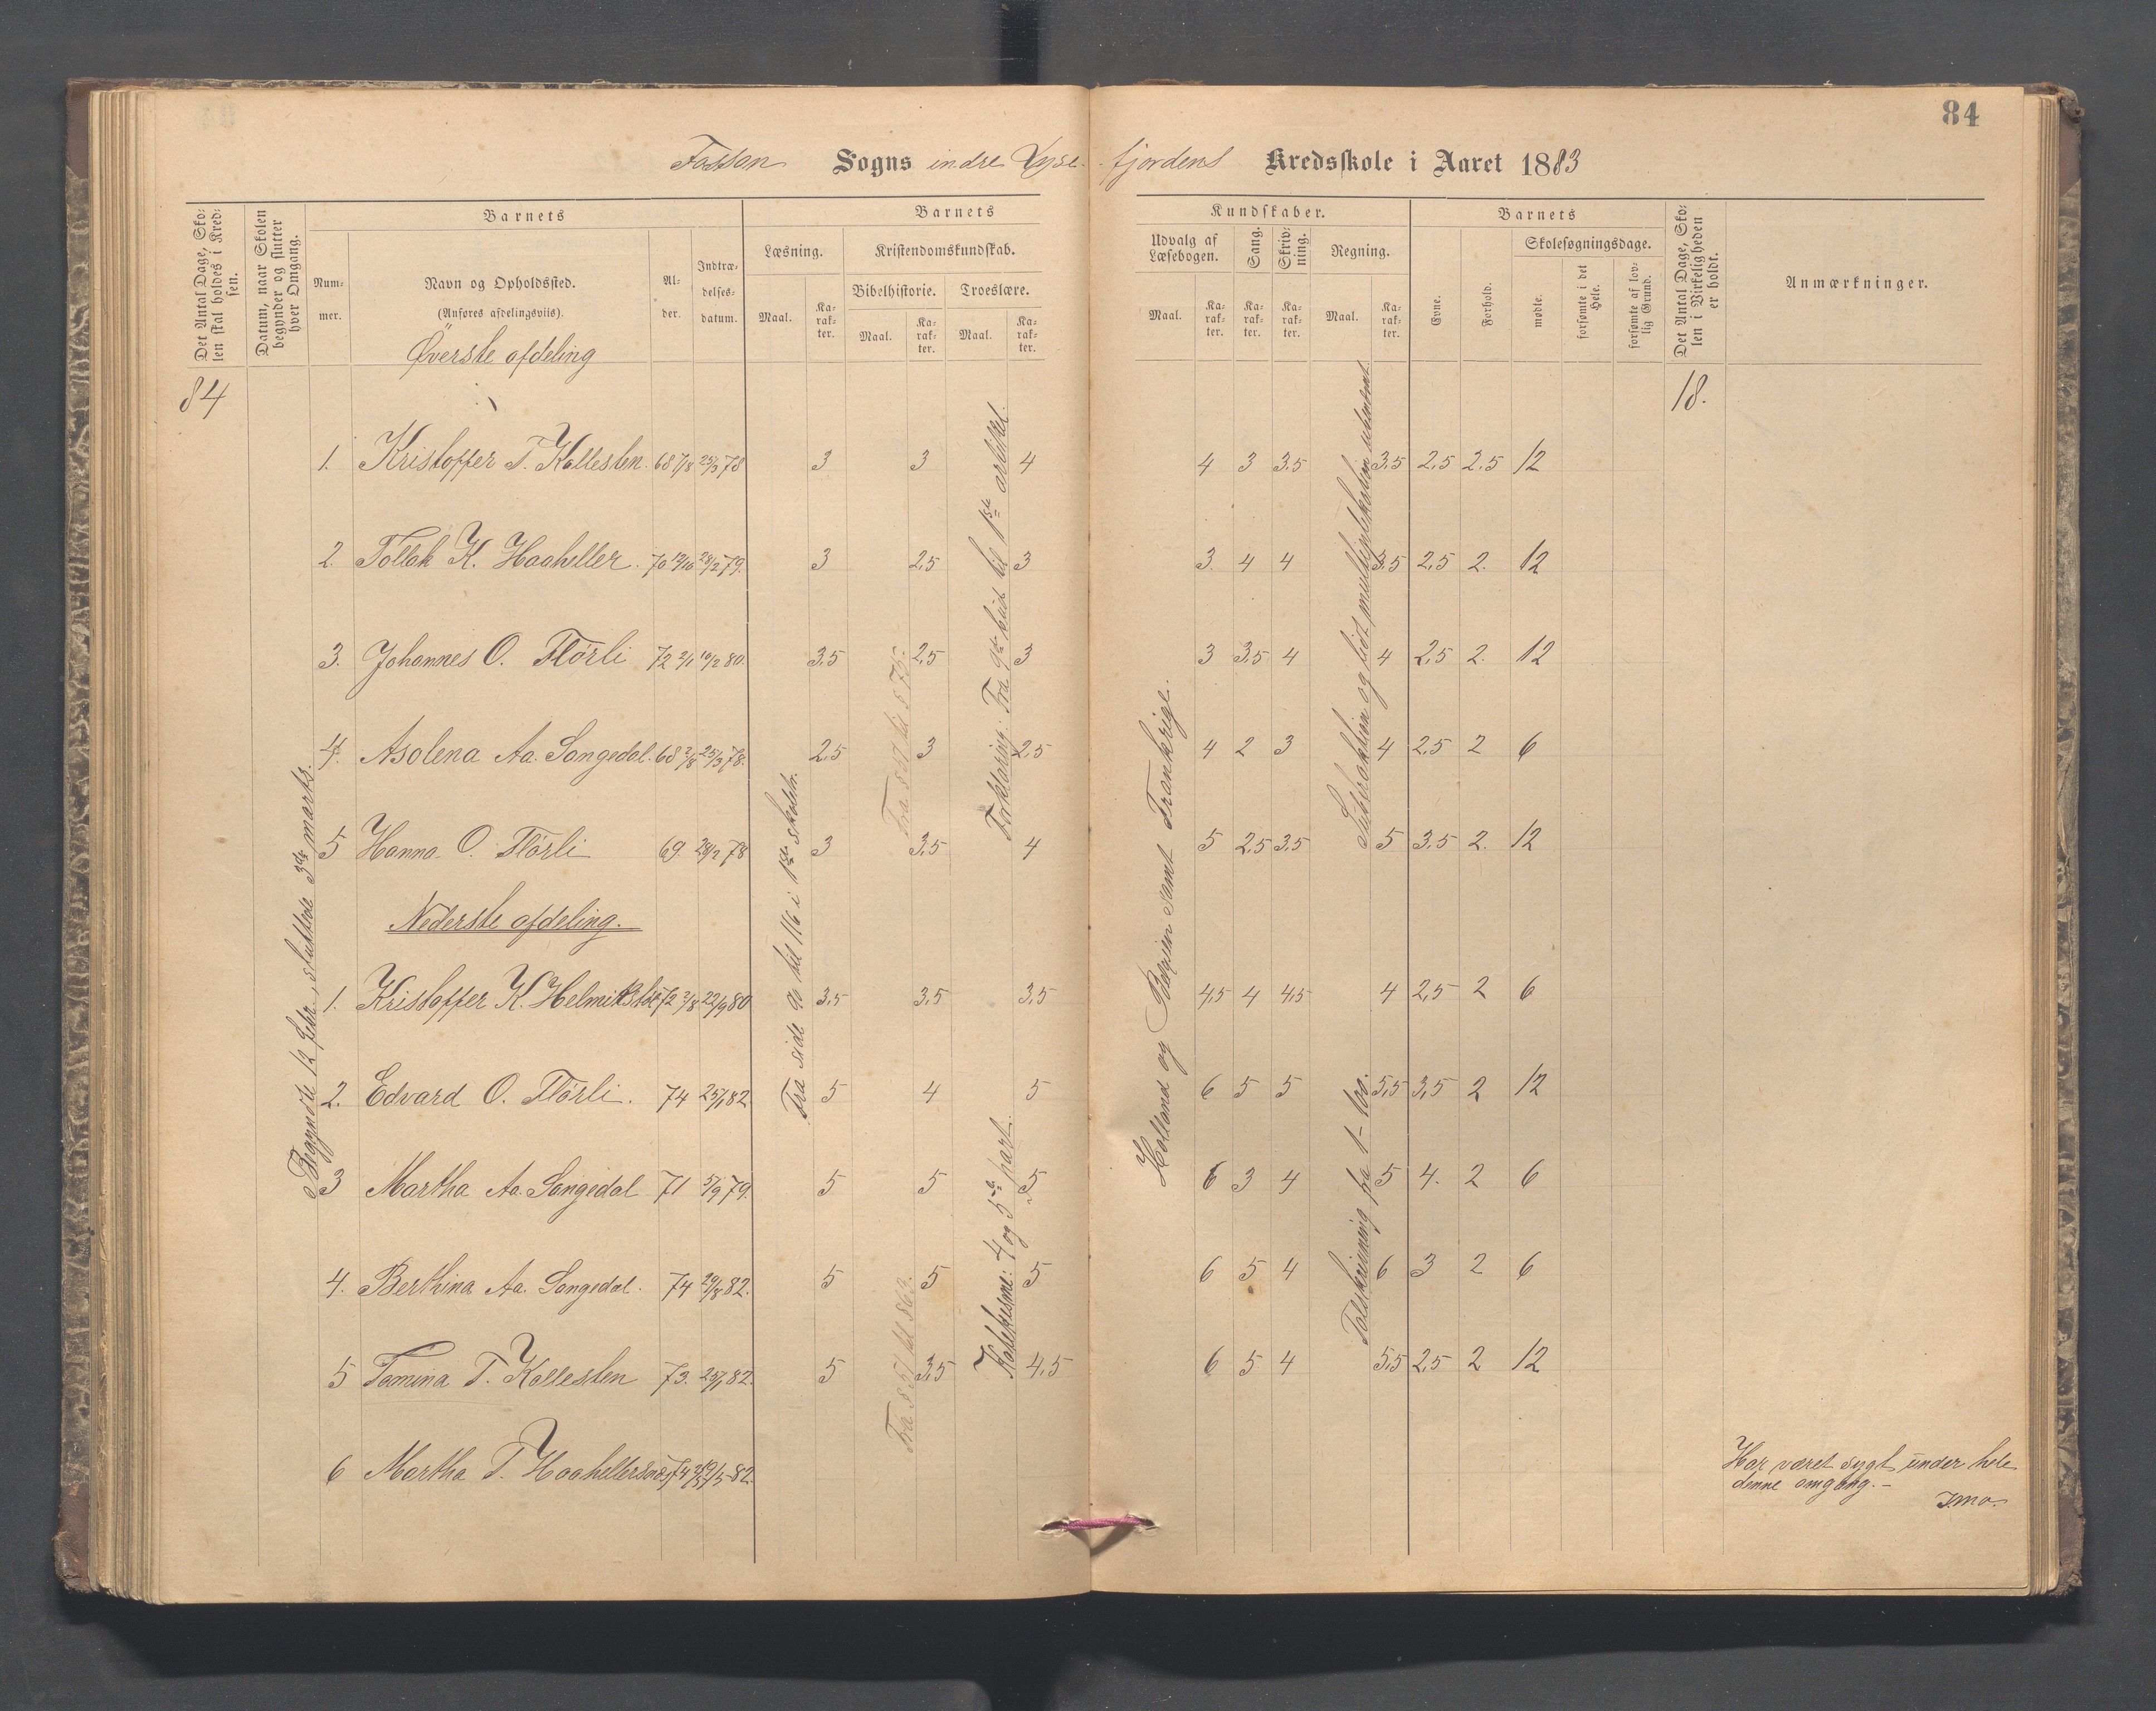 84
Fossan Sogns indre Lyse- fjordens Kredsskole i Aaret 1883
Det Antal Dage, Skolen skal holdes i Kredsen.
Datum, naar Skolen begynder og slutter hver Omgang.
Barnets
Nummer.
Navn og Opholdssted.
(Anføres afdelingsviis).
Alder.
Indtrædelsesdatum.
Barnets
Læsning.
Maal.
Karakter.
Kristendomskundskab.
Bibelhistorie.
Maal.
Karakter.
Troeslære.
Maal.
Karakter.
Kundskaber.
Udvalg af Læsebogen.
Maal.
Karakter.
Sang.
Karakter.
Skrivning.
Karakter.
Regning.
Maal.
Karakter.
Barnets
Evne.
Forhold.
Skolesøgningsdage.
mødte.
forsømte i det Hele.
forsømte af lovlig Grund.
Det Antal Dage, Skolen i Virkeligheden er holdt.
Anmærkninger.
Øverste afdeling
84 18.
1. Kristoffer T. Kallesten. 68 7/8 25/3 78 3 3 4 4 3 3.5 3.5 2,5 2.5 12
2. Tollak K. Haaheller. 70 19/10 28/2 79. 3 2,5 3 3. 4 4 3.5 2,5 2. 12
3. Johannes O. Flörli 72 2/1 16/2 80. 3.5 2,5 3 3 3.5 4 4 2,5 2. 12
4. Asolena Aa. Songedal. 68 2/8 25/3 78. 2,5 3 2,5 4 2 3 4 2,5 2 6
5 Hanna O. Flörli 69. 28/2 78 3 3,5 4 5 2,5 3.5 5 3.5 2. 12
Nederste afdeling.
1. Kristoffer K. Helmikstöl 72 2/8 22/9 80 3,5 3,5 3,5 4,5 4 4,5 4 2,5 2 6
2. Edvard O. Flörli. 74 25/1 82 5 4 5 6 5 5 5,5 3,5 2 12
3 Martha Aa. Songedal 71 5/9 79. 5 5 5 6 3 4 5 4. 2 6
4. Berthina Aa. Songedal. 74 29/8 82. 5 5 5 6 5 4 6 3 2 6
5 Tomina T. Kallesten 73. 25/1 82. 5 3,5 4,5 6 5 4 5,5 2,5 2 12
6 Martha T. Haaheller 82.
Har været sygt under hele
denne omgang.-
J.mo.
Begyndte 12 febr., sluttede 3die marts.
Fra side 90 til 116 i 1ste skoletr.
Fra § 47 til § 75.
Fra § 51 til § 63.
Forklaring: Fra 9de bud til 1ste artikkel.
Katekisme: 4 og 5te part.
Holland og Belgien samt Frankrige.
Subtraktion og lidt multiplikation
Talskrivning fra 1-100.